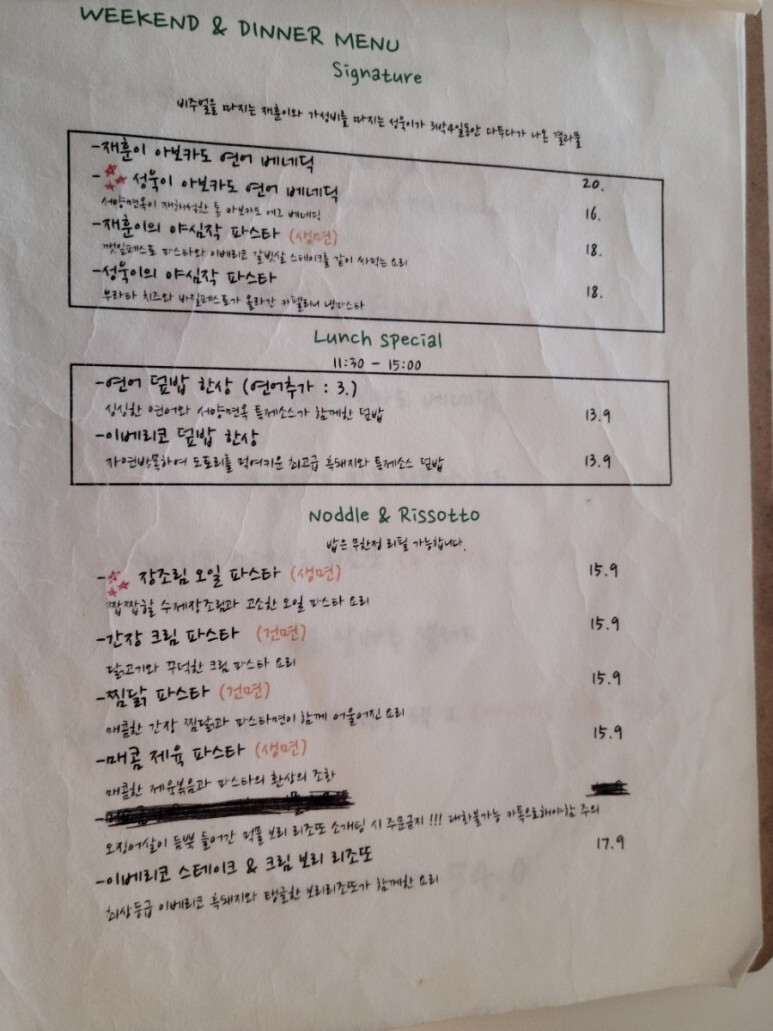 WEEKEND & DINNER MENU
Signature
비주얼을 따지는 재훈이와 가성비를 따지는 성욱이가 3박4일동안 다투다가 나온 결과물
-재훈이 아보카도 연어 베네딕 20.
-성욱이 아보카도 연어 베네딕 16.
서양면옥이 재해석한 통 아보카도 에그 베네딕
-재훈이의 야심작 파스타 (생면) 18.
깻잎페스토 파스타와 이베리코 갈빗살 스테이크를 같이 싸먹는 요리
-성욱이의 야심작 파스타 18.
부라타 치즈와 바질페스토가 올라간 카펠리니 냉파스타
Lunch special
11:30 - 15:00
-연어 덮밥 한상 (연어추가 : 3.)
싱싱한 연어와 서양면옥 특제소스가 함께한 덮밥 13.9
-이베리코 덮밥 한상
자연방목하여 도토리를 먹여키운 최고급 흑돼지와 특제소스 덮밥 13.9
Noddle & Rissotto
밥은 무한정 리필 가능합니다.
-장조림 오일 파스타 (생면) 15.9
짭짭할 수제장조림과 고소한 오일 파스타 요리
-간장 크림 파스타 (건면) 15.9
닭고기와 꾸덕한 크림 파스타 요리
-찜닭 파스타 (건면) 15.9
매콤한 간장 찜닭과 파스타면이 함께 어울어진 요리
-매콤 제육 파스타 (생면) 15.9
매콤한 제육볶음과 파스타의 환상의 조화
오징어살이 듬뿍 들어간 먹물 보리 리조또 소개팅 시 주문금지 !!! 대화불가능 카톡으로해야함 주의
-이베리코 스테이크 & 크림 보리 리조또 17.9
최상등급 이베리코 흑돼지와 탱글한 보리리조또가 함께한 요리